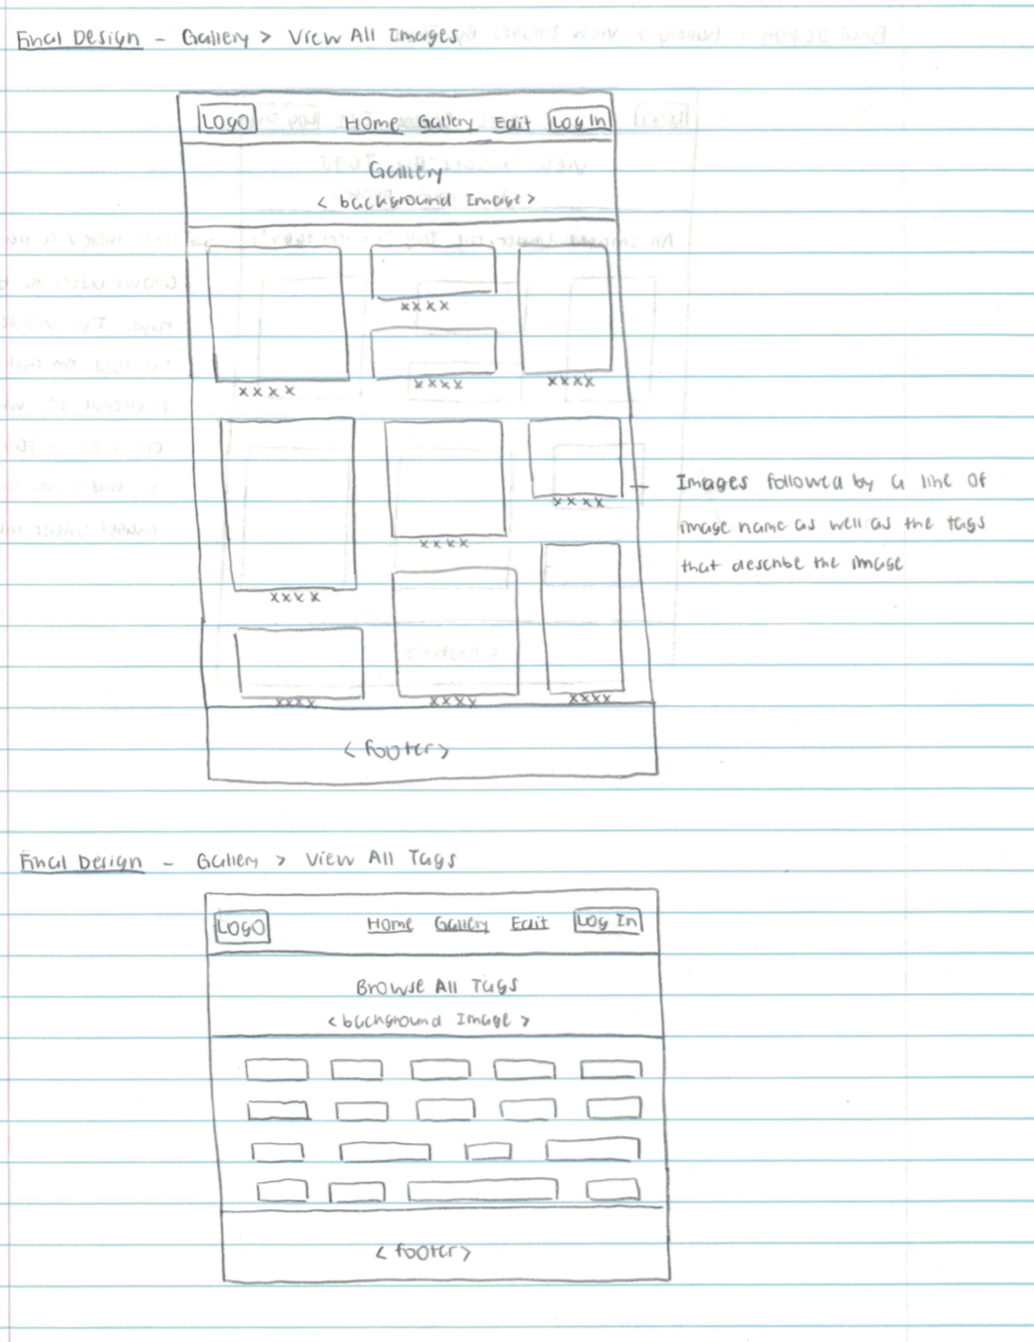 Final Design - Gallery > View All Images
Logo Home Gallery Edit Log In
Gallery
< background Image >
xxxx
xxxx xxxx
xxxx
xxxx
xxxx
xxxx
xxxx xxxx xxxx
Images followed by a line of
image name as well as the tags
that describe the image
< footer >
Final Design - Gallery > View All Tags
Logo Home Gallery Edit Log In
Browse All Tags
< background Image >
< footer >